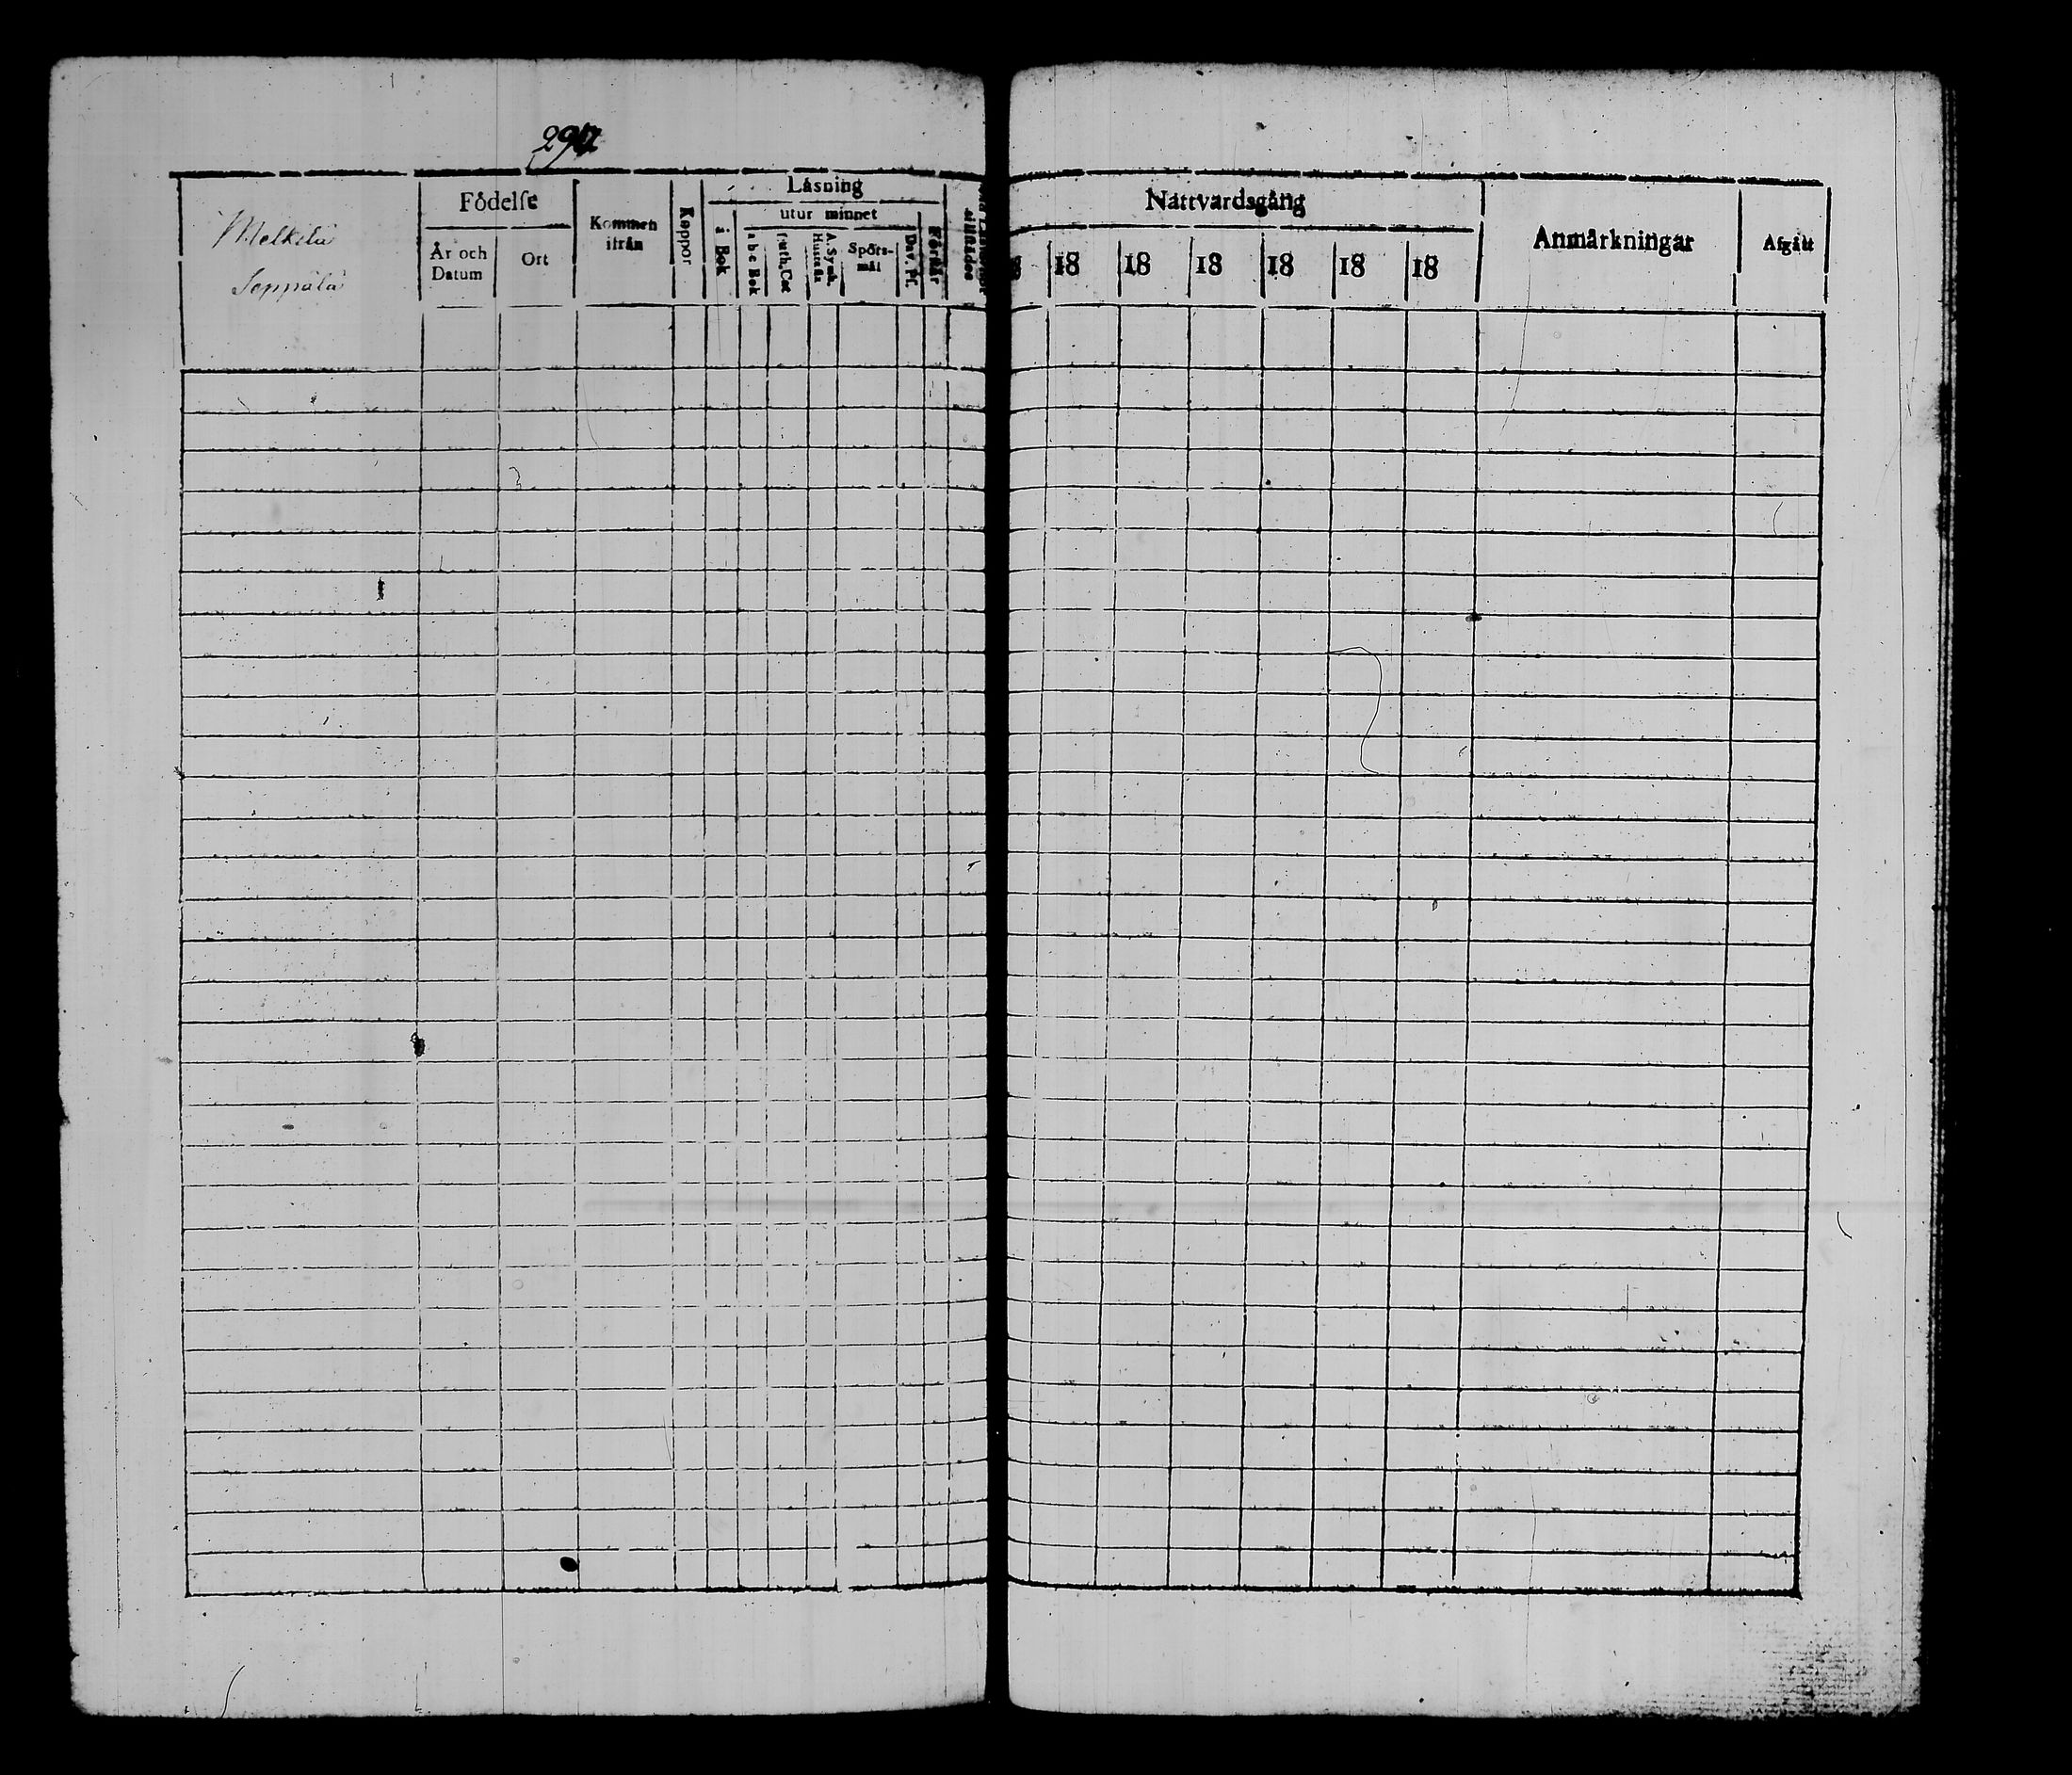 Melkilä
Seppälä
Födelse
År och Datum
Ort
Kommen ifrån
Koppor
Läsning
i Bok
utur minnet
a b c Bok
Luth. Cat
A. Symb. Hustafla
Spörs-mål
Dav. Ps.
Förhör
Nattvardsgång
18 18 18 18 18 18
Anmärkningar
Afgått